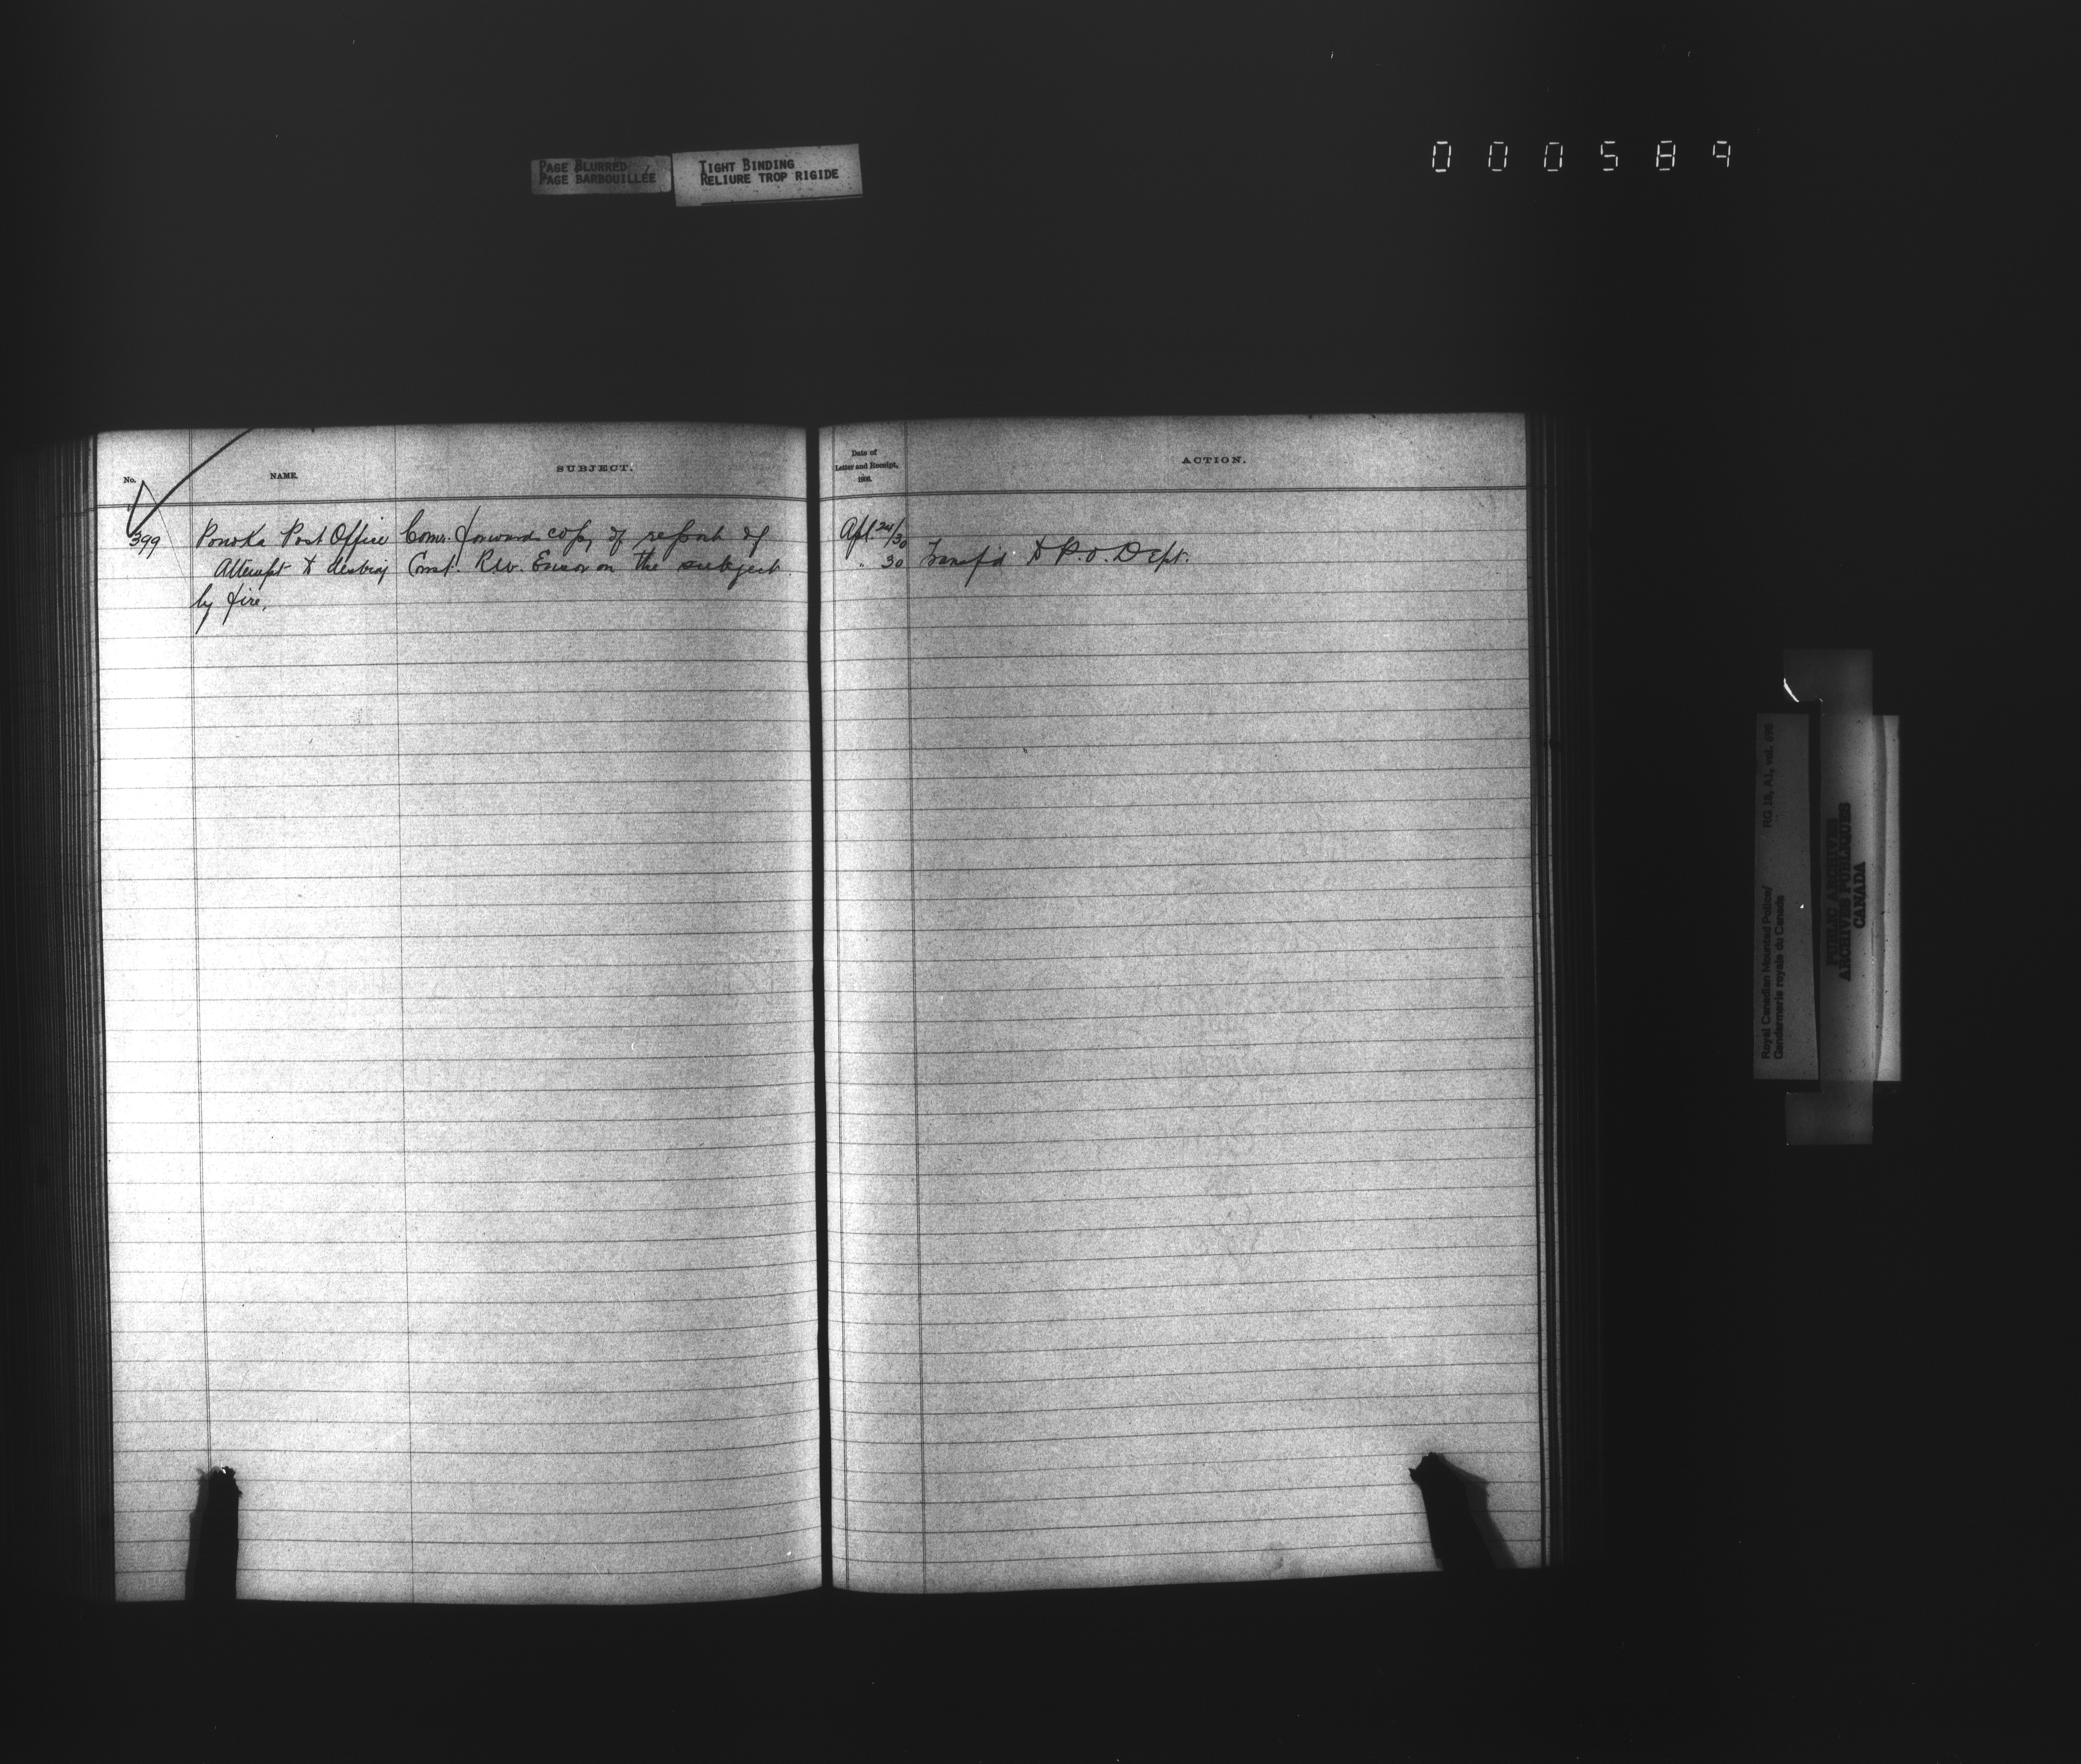 PAGE BLURRED
PAGE BARBOUILLÉE
TIGHT BINDING
RELIURE TROP RIGIDE
000589
No.
NAME.
SUBJECT.
Date of
Letter and Receipt,
1908.
ACTION.
399 Ponoka Post Office Comr. forwards copy of report of Apl. 24/30
Attempt to destroy Const. R.W. Ensor on the subject. " 30 Transf'd to P.O. Dept.
by fire.
Royal Canadian Mounted Police/ RG 18, A1, vol.
Gendarmerie royale du Canada
PUBLIC ARCHIVES
ARCHIVES PUBLIQUES
CANADA